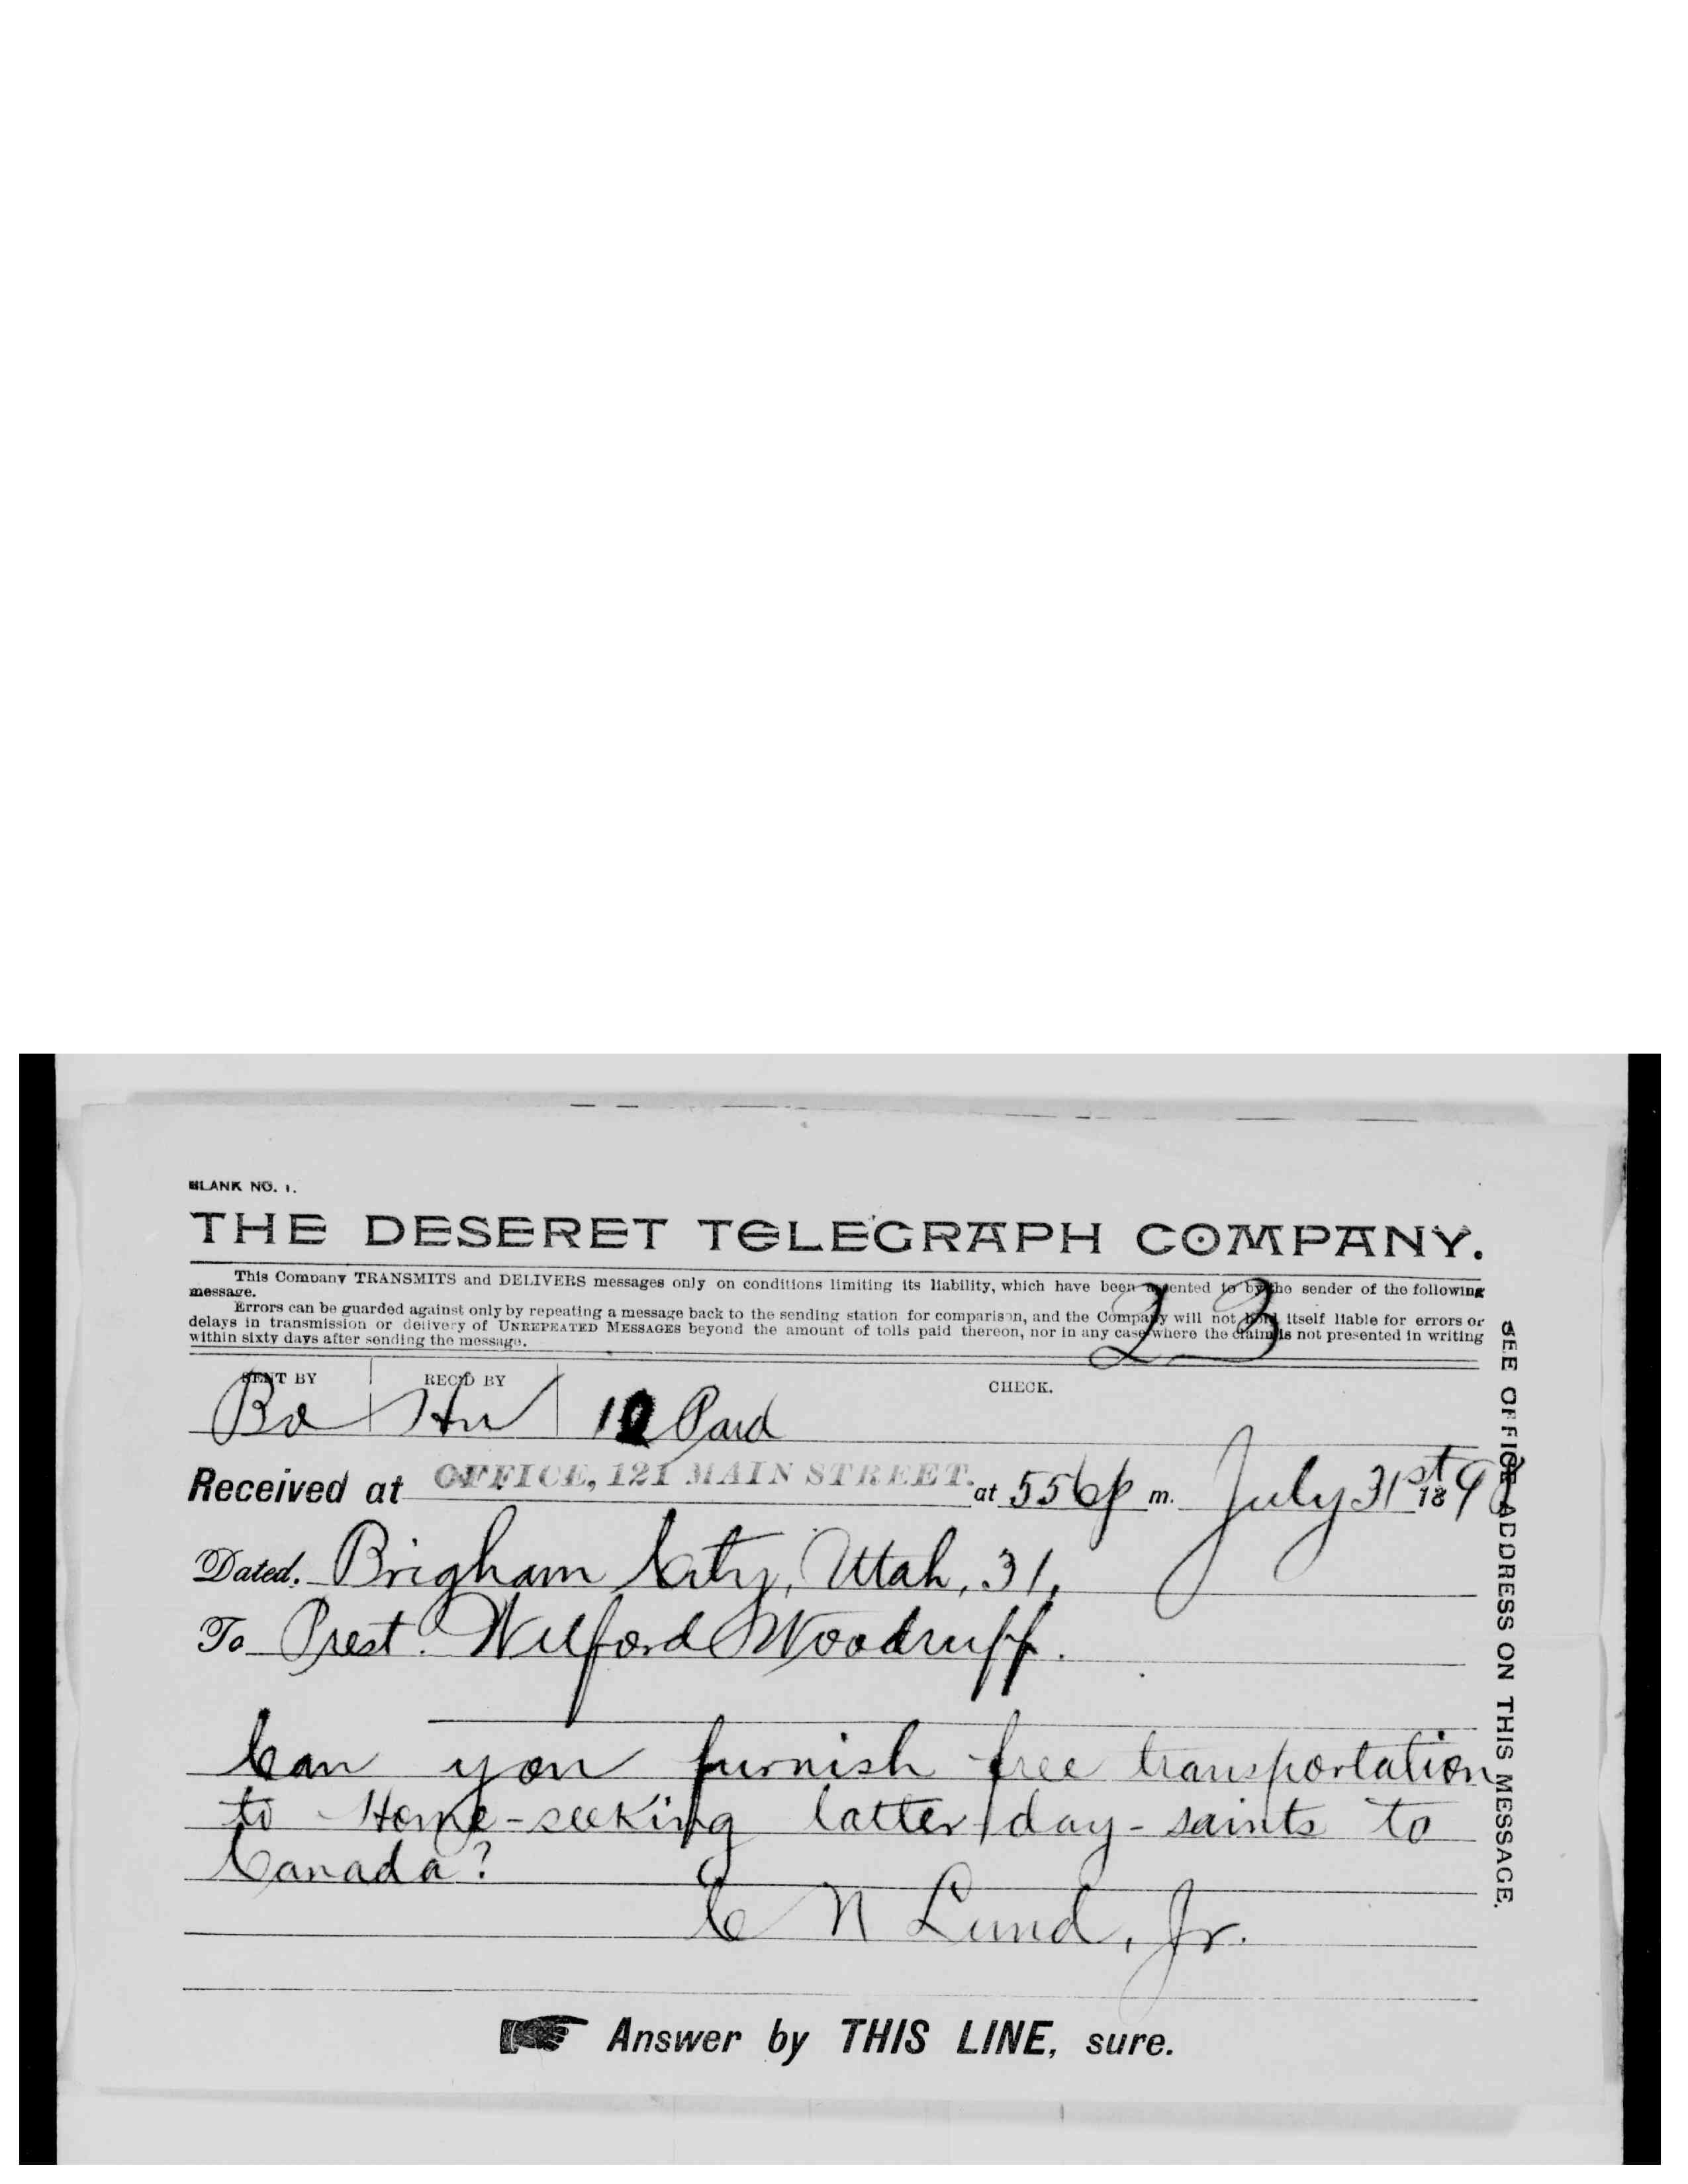 BLANK NO. 1.
THE DESERET TELEGRAPH COMPANY.
This Company TRANSMITS and DELIVERS messages only on conditions limiting its liability, which have been assented to by the sender of the following
message.
Errors can be guarded against only by repeating a message back to the sending station for comparison, and the Company will not hold itself liable for errors or
delays in transmission or delivery of UNREPEATED MESSAGES beyond the amount of tolls paid thereon, nor in any case where the claim is not presented in writing
within sixty days after sending the message.
23
SENT BY REC'D BY CHECK.
Paid
Received at OFFICE, 121 MAIN STREET. at 556 p m. July 31st 189
Dated. Brigham City, Utah, 31,
To Prest. Wilford Woodruff.
Can you furnish free transportation
to Home-seeking latter-day-saints to
Canada?
C N Lund, Jr.
Answer by THIS LINE, sure.
SEE OFFICE ADDRESS ON THIS MESSAGE.